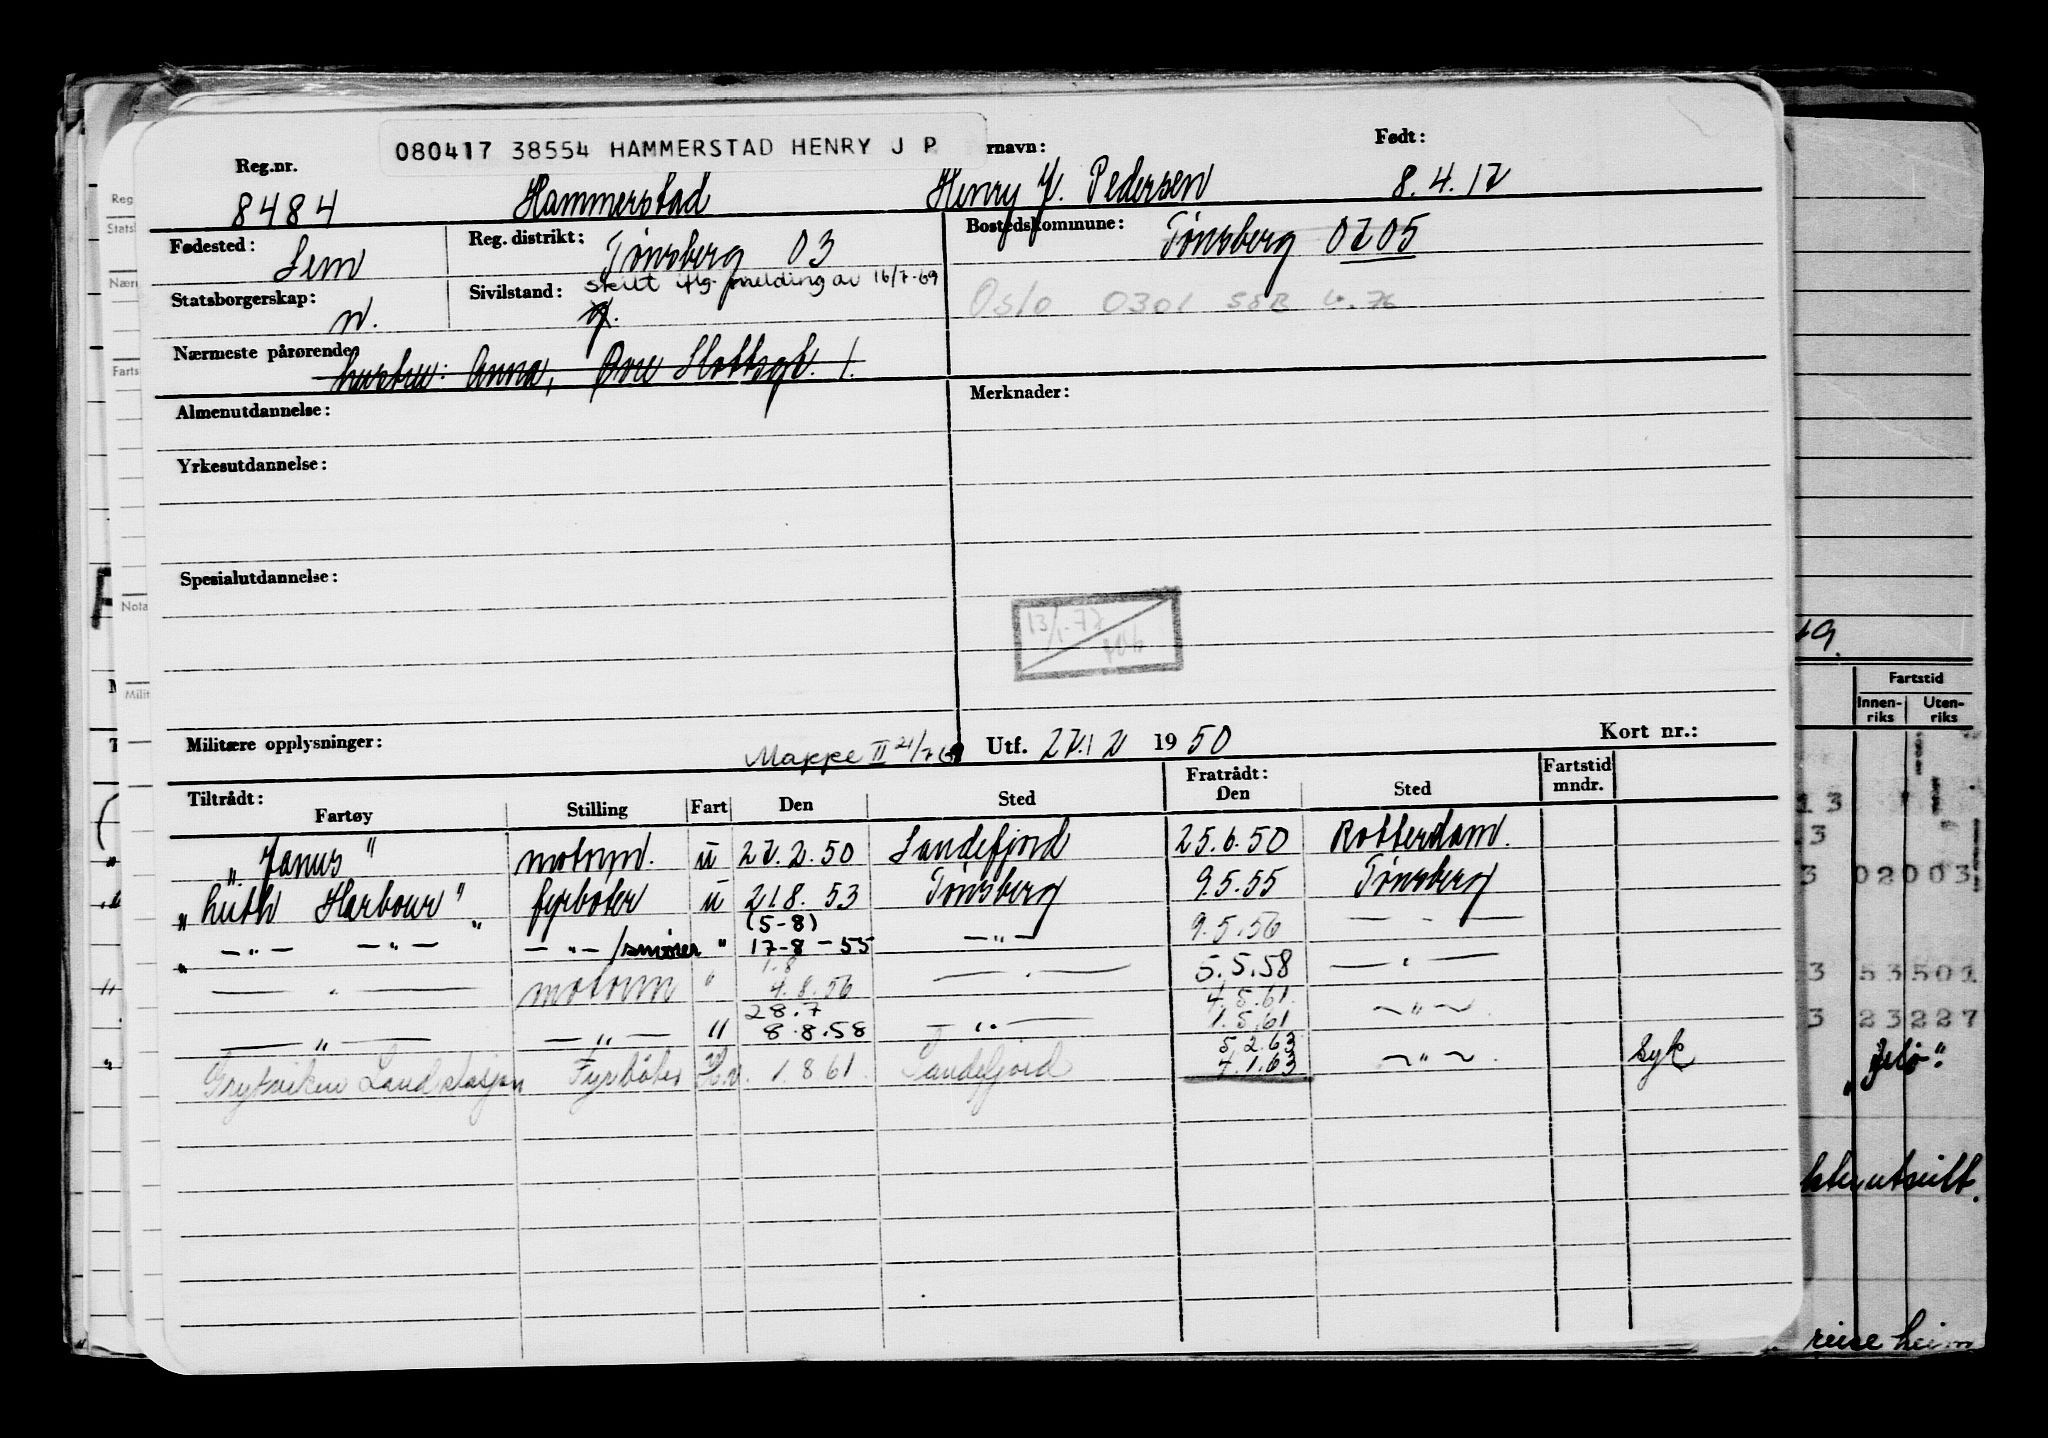 080417 38554 HAMMERSTAD HENRY J P
Reg.nr. rnavn: Født:
8484 Hammerstad Henry J. Pedersen 8.4.17
Fødested: Sem Reg. distrikt: Tønsberg 03 Bostedskommune: Tønsberg 0705
Statsborgerskap: n. Sivilstand: skilt iflg. melding av 16/7-69 g.
Oslo 0301
Nærmeste pårørende: hustru: Anna, Øvre Slottsgt. 1.
Almenutdannelse: Merknader:
Yrkesutdannelse:
Spesialutdannelse:
13/1-77
Militære opplysninger: Mappe II 21/7 69 Utf. 27/2 1950 Kort nr.:
Tiltrådt: Fratrådt: Fartstid mndr.
Fartøy Stilling Fart Den Sted Den Sted
"Janus" motorm. u 27.2.50 Sandefjord 25.6.50 Rotterdam.
"Luth Harbour" fyrbøter u 21.8.53 Tønsberg 9.5.55 Tønsberg
(5-8)
— " — — " — — " — /smører " 17-8-55 — " — 9.5.56 — " —
1.8
— " — motorm " 4.8.56 — " — 5.5.58 — " —
28.7 4.5.61.
— " — — " — " 8.8.58 — " — 1.5.61 — " —
5.2.63
Grytviken Landstasjon Fyrbøter 1.8 61 Sandefjord 4.1.63 — " — syk
Reg
Stats
Nærn
Farts
Nota
Milit
Fartstid
Innen-riks Uten-riks
13
3
3 02 003
3 53 501
3 23 227
"Jelø"
reise heim